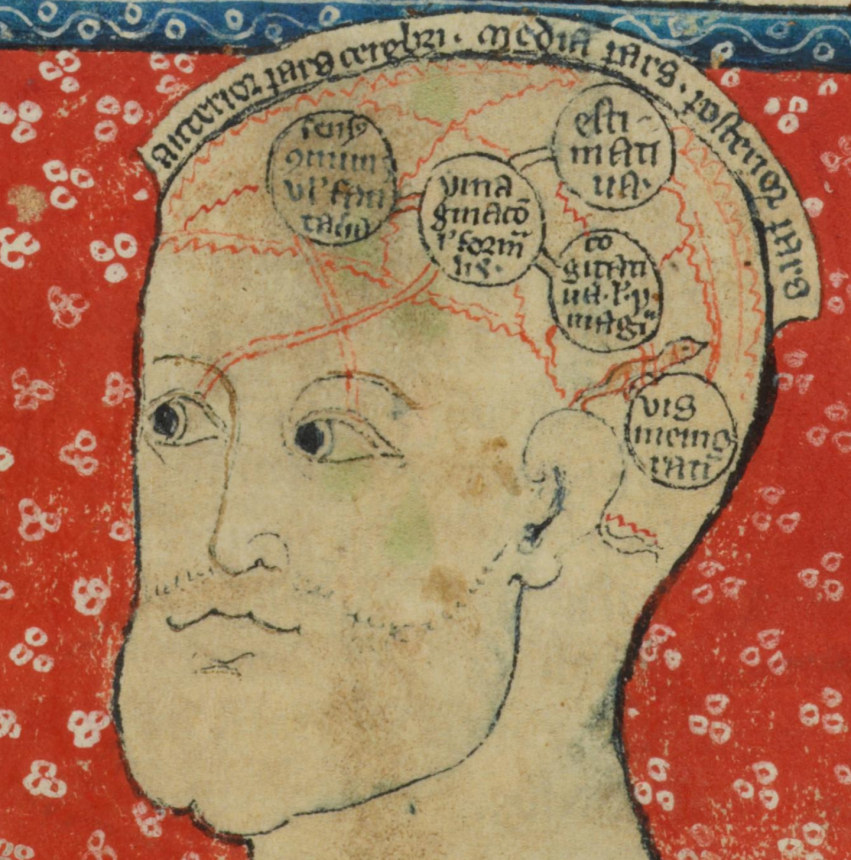 anterior pars cerebri · media pars · posterior pars
sensꝰ
ꝯmunis
vl' fan
tasia
ymа
ginacō
l' form̄
lis ·
esti-
mati
ua ·
co
gitati
ua · l' y
magi᷑
vis
memo
rati᷑